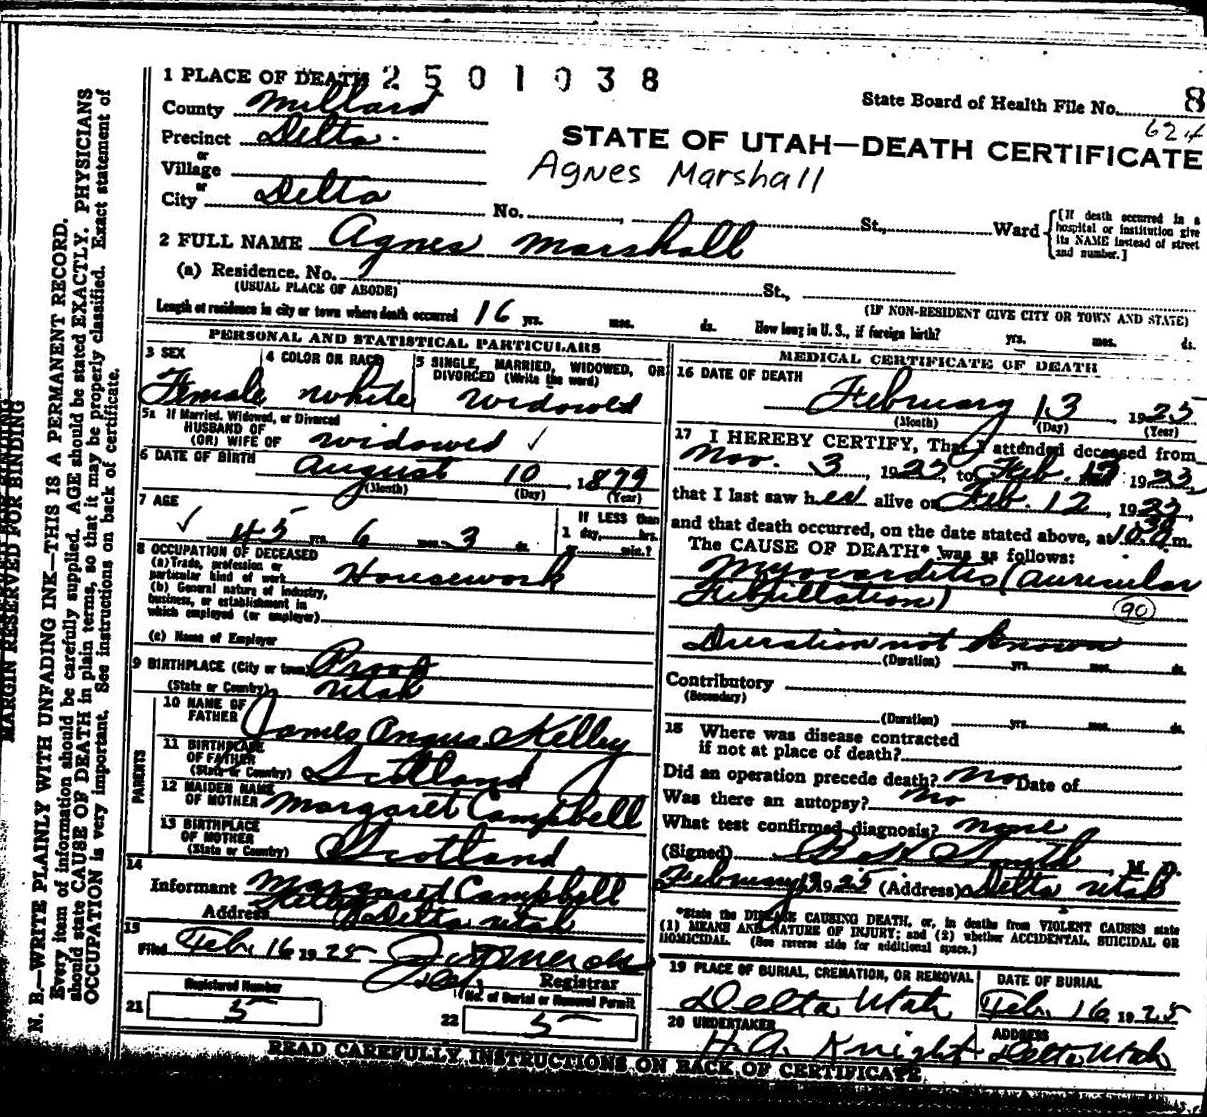 1 PLACE OF DEATH 2501038
County Millard
State Board of Health File No. 8
624
Precinct Delta
or
Village
STATE OF UTAH—DEATH CERTIFICATE
Agnes Marshall
or
City Delta No. , St., Ward
[If death occurred in a hospital or institution give its NAME instead of street and number.]
2 FULL NAME Agnes Marshall
(a) Residence. No. St.,
(USUAL PLACE OF ABODE) (IF NON-RESIDENT GIVE CITY OR TOWN AND STATE)
Length of residence in city or town where death occurred 16 yrs. mos. ds. How long in U. S., if foreign birth? yrs. mos. ds.
PERSONAL AND STATISTICAL PARTICULARS
3 SEX
Female
4 COLOR OR RACE
White
5 SINGLE, MARRIED, WIDOWED, OR
DIVORCED (Write the word)
Widowed
5a If Married, Widowed, or Divorced
HUSBAND OF
(OR) WIFE OF Widowed ✓
6 DATE OF BIRTH August 10, 1879
(Month) (Day) (Year)
7 AGE
✓ 45 yrs. 6 mos. 3 ds.
If LESS than
1 day, hrs.
or min.?
8 OCCUPATION OF DECEASED
(a) Trade, profession or
particular kind of work Housework
(b) General nature of industry,
business, or establishment in
which employed (or employer)
(c) Name of Employer
9 BIRTHPLACE (City or town)
(State or Country) Utah
PARENTS
10 NAME OF
FATHER James Angus Kelley
11 BIRTHPLACE
OF FATHER
(State or Country) Scotland
12 MAIDEN NAME
OF MOTHER Margaret Campbell
13 BIRTHPLACE
OF MOTHER
(State or Country) Scotland
14
Informant Margaret Campbell
Kelley
Address Delta Utah
15
Filed Feb. 16 1925
Registrar
Registered Number
No. of Burial or Removal Permit
21 5
22 5
MEDICAL CERTIFICATE OF DEATH
16 DATE OF DEATH
February 13, 1925
(Month) (Day) (Year)
17 I HEREBY CERTIFY, That I attended deceased from
Nov. 3, 19 to Feb. 19
that I last saw her alive on Feb. 12, 19
and that death occurred, on the date stated above, at m.
The CAUSE OF DEATH* was as follows:
Myocarditis (auricular
Fibrillation)
90
Duration not known
(Duration) yrs. mos. ds.
Contributory
(Secondary)
(Duration) yrs. mos. ds.
18 Where was disease contracted
if not at place of death?
Did an operation precede death? No Date of
Was there an autopsy? No
What test confirmed diagnosis? none
(Signed) Smith M. D.
February 1925 (Address) Delta Utah
*State the DISEASE CAUSING DEATH, or, in deaths from VIOLENT CAUSES state
(1) MEANS AND NATURE OF INJURY; and (2) whether ACCIDENTAL, SUICIDAL OR
HOMICIDAL. (See reverse side for additional space.)
19 PLACE OF BURIAL, CREMATION, OR REMOVAL
Delta Utah
DATE OF BURIAL
Feb. 16 1925
20 UNDERTAKER
H. A. Knight
ADDRESS
Delta Utah
READ CAREFULLY INSTRUCTIONS ON BACK OF CERTIFICATE
MARGIN RESERVED FOR BINDING
N. B.—WRITE PLAINLY WITH UNFADING INK—THIS IS A PERMANENT RECORD.
Every item of information should be carefully supplied. AGE should be stated EXACTLY. PHYSICIANS
should state CAUSE OF DEATH in plain terms, so that it may be properly classified. Exact statement of
OCCUPATION is very important. See instructions on back of certificate.